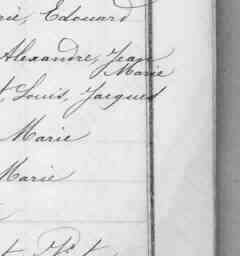 Edouard
Alexandre, Jean
Marie
Louis, Jacques
Marie
Marie